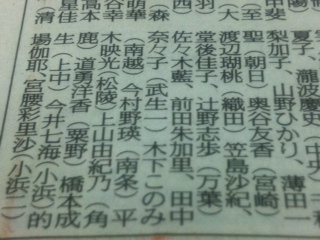 甲斐
(至
(大
羽
西
(森
萌華
谷幸
高本
星佳
夏子、瀧波慶史(中央)
梨加子、山野ひかり、薄田一
聖(朝日)奥谷友香(宮崎)
渡辺瑠桃(織田)笠島沙紀、
堂後佳子、辻野志歩(万葉)
佐々木藍、前田朱加里、田中
奈々子(武生一)木下このみ
(南越)今村野瑛(南条)平
木映光(松陵)上山由紀乃(角
鹿)道勇洋香(粟野)橋本成
生(上中)今井七海(小浜)的
場伽耶、宮腰彩里沙(小浜二)